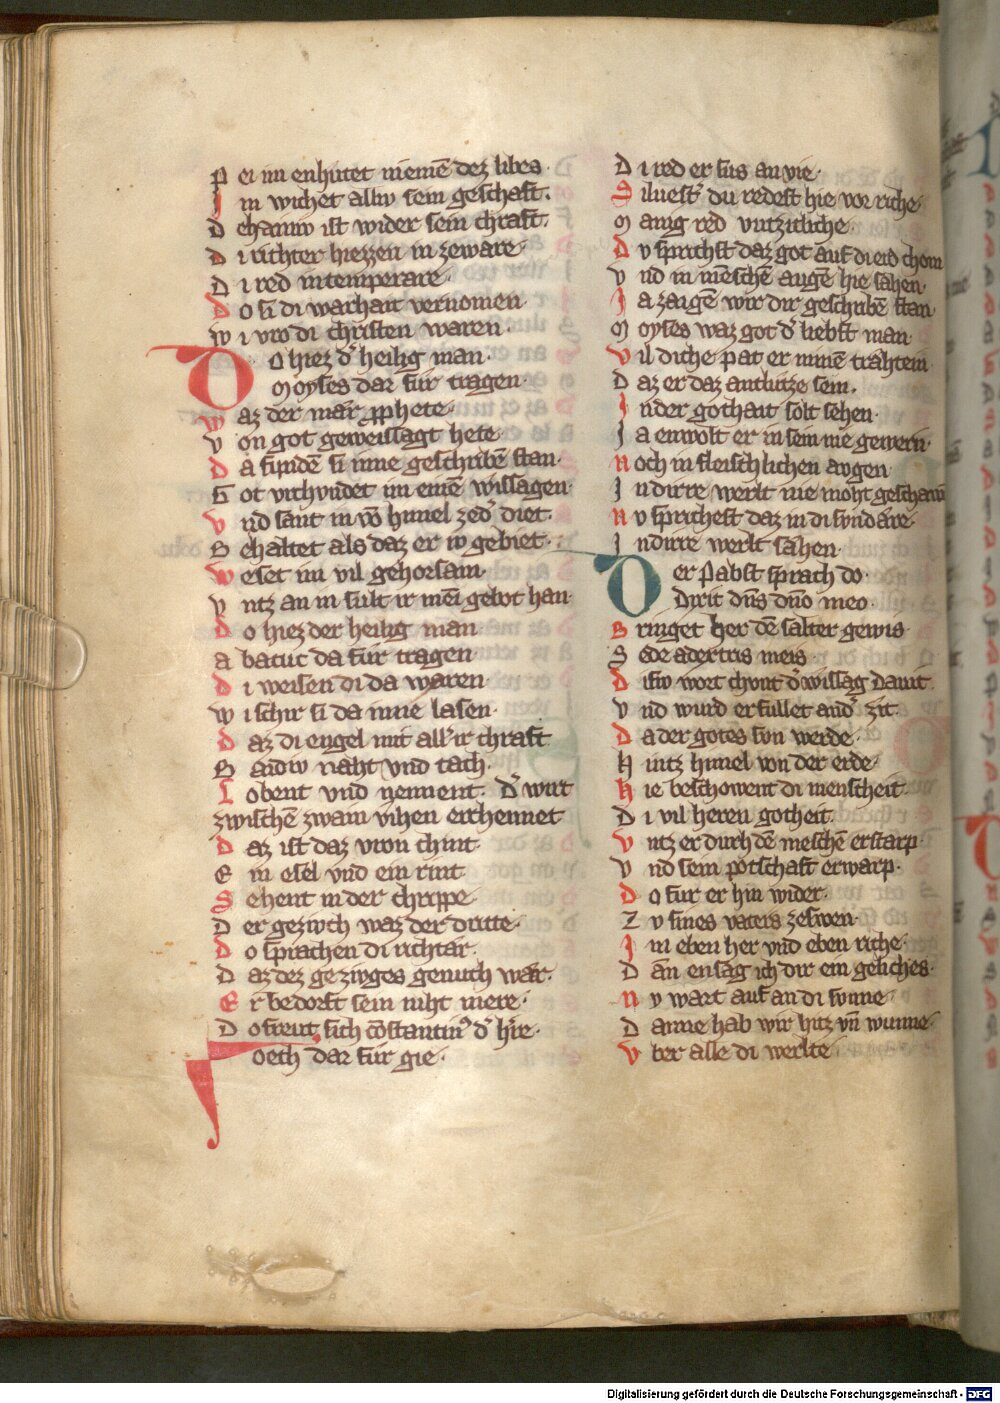 P ei im enhůtet niemē dez libes·
J m wichet alliv sein geschaft.
D ehainiv ist wider sein chraft.
D i richter hiezzen in zeware·
D i red in temperare·
D o si di warhait vernomen·
W i vro di christen waren·
Do hiez d̾ heilig man·
Moyses dar fur tragen·
W az der mær pphete·
V on got geweissagt hete·
D a fundē si inne geschribē stan·
G ot vrchvndet im einē wissagen·
V nd sant in vō himel zed̾ diet·
B ehaltet als daz er iv gebiet·
W eset im vil gehorsam·
V ntz an in sult ir mēi gebot han·
D o hiez der heilig man
A bacuc da fur tragen
D i weisen di da waren·
W i schir si da inne lasen·
D az di engel mit all̾ ir chraft
B ædiv naht vnd tach·
L obent vnd nennent. D̾ wirt
zwischē zwain vihen erchennet
D az ist daz vron chint
E in esel vnd ein rint
S ehent in der chrippe·
D er geziwch waz der dritte·
D o sprachen di richtær·
D az dez gezivges genuch wær.
E r bedorft sein niht mere·
D o freut sich cōstantin⁹ d̾ hie·
Joech dar fur gie·
D i red er sus an vie·
S iluest̾ du redest hie vor riche·
M anig red vntzitliche·
D v sprichst daz got auf di erd chom
V nd in mēschē augē hie sahen·
J a zaigē wir dir geschribē stan·
M oyses waz got d̾ liebst man·
V il diche pat er minē trähtein
D az er daz antlutze sein.
J nder gothait solt sehen·
J a enwolt er in sein nie gewern·
N och in fleischlichen avgen
J n dirre werlt nie moht geschawē
N v sprichest daz in di svndære·
J n dirre werlt sahen·
Der Pabst sprach do·
Dixit dn̄s dn̄o meo·
B ringet her dē salter gewis·
S ede a dextris meis·
D isiv wort chvnt d̾ wissag Dauit
V nd wurd erfullet and̾ zit·
D a der gotes svn werde·
H intz himel von der erde·
H ie beschowent di menscheit·
D i vil heren gotheit.
V ntz er durh dē meschē erstarp·
V nd sein potschaft erwarp·
D o fur er hin wider·
Z v sines vaters zeswen·
J m eben her vnd eben riche·
D an ensag ich dir ein geliches·
N v wart auf an di svnne·
D anne hab wir hitz vn̄ wunne·
V ber alle di werlte·
Digitalisierung gefördert durch die Deutsche Forschungsgemeinschaft - DFG